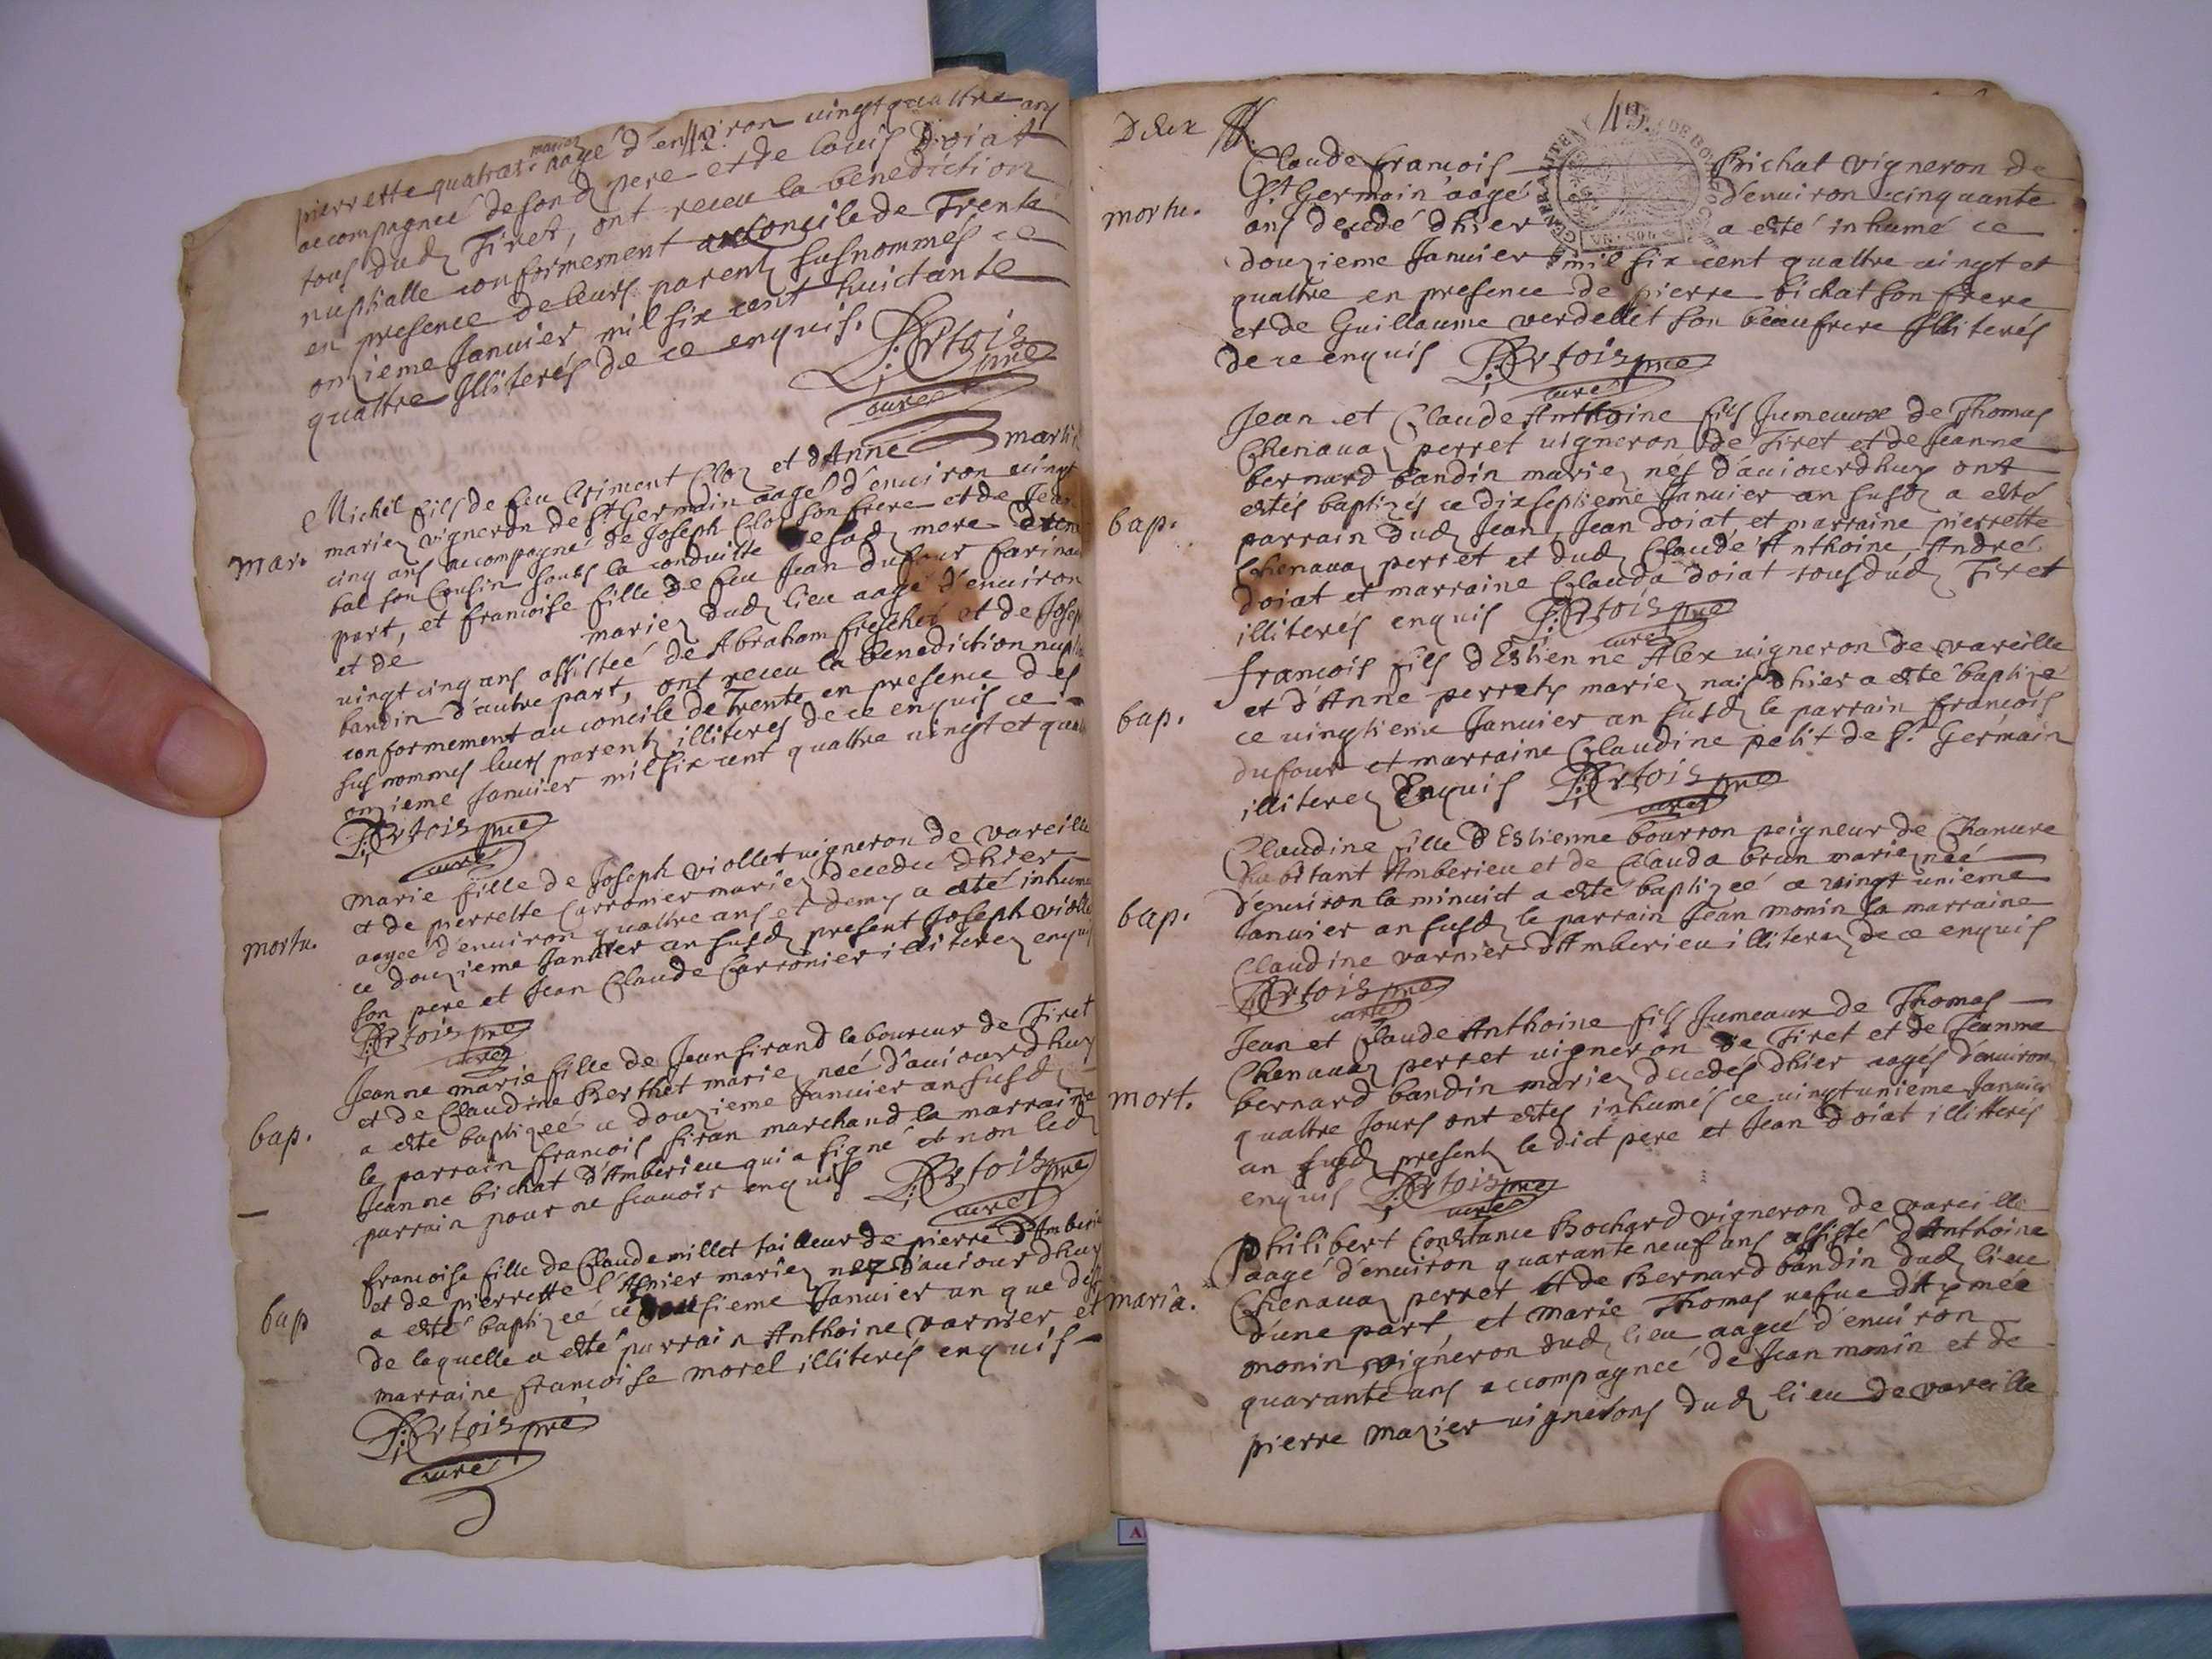 pierrette quatras mariez aagé d'environ vingt quattre ans
accompagneé de sond pere et de louis Doiat
tous dud Tiret, ont receu la benediction
nuptialle conformement au concile de Trente
en presence de leurs parentz susnommés ce
onzieme Januier mil six cent huictante
quattre Illiterés de ce enquis. P: Ortois pre
curé
mar.
Michel fils de feu Climent Cloz et d'Anne marti
mariez vigneron de St Germain aagé d'enuiron vingt
cinq ans accompagné de Joseph Cloz son frere et de Jean
bal son Cousin soubs la conduitte de sad mere d'une
part, et francoise fille de feu Jean dufour farinau
et de mariez dud lieu aagé d'enuiron
vingt cinq ans assisteé de Abraham freschet et de Josep
bandin d'autre part, ont receu la benediction nupti
conformement au concile de Trente en presence des
susnommes leurs parentz illiteres de ce enquis ce
onzieme Januier mil six cent quattre vingt et quat
P: Ortois pre
curé
mortu.
marie fille de Joseph viollet vigneron de vareille
et de pierrette Carronier mariez decedeé dhier
aageé d'enuiron quattre ans et demy a esté inhumé
ce douzieme Januier an susd present Joseph viollet
son pere et Jean Claude Carronier illiterez enquis
P: Ortois pre
curé
bap.
Jeanne marie fille de Jean sirand laboureur de Tiret
et de Claudine Berthet mariez neé d'auiourdhuy
a esté baptizeé ce douzieme Januier an susd
le parrain francois siran marchand la marraine
Jeanne bichat d'Amberieu qui a signé et non led
parrain pour ne scauoir enquis P: Ortois pre
curé
bap
francoise fille de Claude millet tailleur de pierre d'Amberie
et de pierrette mariez neé d'auiourdhuy
a esté baptizeé ce Januier an que des
de laquelle a esté parrain Anthoine varnier et
marraine francoise morel illiterés enquis
P: Ortois pre
curé
Deux
49.
GENERALITE DE BOURGOGNE
mortu.
Claude francois Bichat vigneron de
St Germain aagé d'enuiron cinquante
ans decedé dhier a esté inhumé ce
douzieme Januier mil six cent quattre vingt et
quattre en presence de pierre bichat son frere
et de Guillaume verdellet son beaufrere Illiterés
de ce enquis P: Ortois pre
curé
bap.
Jean et Claude Anthoine fils Jumeaux de Thomas
Chenauaz perret vigneron de Tiret et de Jeanne
bernard bandin mariez nés d'auiourdhuy ont
estés baptizés ce dixseptieme Januier an susd a esté
parrain dud Jean, Jean doiat et marraine pierrette
Chenauaz perret et dud Claude Anthoine, André
doiat et marraine Clauda doiat tous dud Tiret
illiterés enquis P: Ortois pre
curé
bap.
francois fils d'Estienne Alex vigneron de vareille
et d'Anne perretz mariez nais dhier a esté baptizé
ce vingtieme Januier an susd le parrain francois
dufour et marraine Claudine petit de St Germain
illiterez Enquis P: Ortois pre
curé
bap.
Claudine fille d'Estienne bourron peigneur de Chanure
habitant Amberieu et de Clauda brun mariez neé
d'enuiron la minuict a esté baptizeé ce vingt unieme
Januier an susd le parrain Jean monin la marraine
Claudine varnier d'Amberieu illiterez de ce enquis
P: Ortois pre
curé
mort.
Jean et Claude Anthoine fils Jumeaux de Thomas
Chenauaz perret vigneron de Tiret et de Jeanne
bernard bandin mariez decedés dhier aagés d'enuiron
quattre Jours ont estés inhumés ce vingtunieme Januier
an susd presentz le dict pere et Jean doiat illitterés
enquis P: Ortois pre
curé
maria.
Philibert Constance Bochard vigneron de vareille
aagé d'enuiron quarante neuf ans assisté d'Anthoine
Chenauaz perret et de Bernard bandin dud lieu
d'une part, et marie Thomas vefue d'Aymée
monin vigneron dud lieu aageé d'enuiron
quarante ans accompagneé de Jean monin et de
pierre mazier vignerons dud lieu de vareille